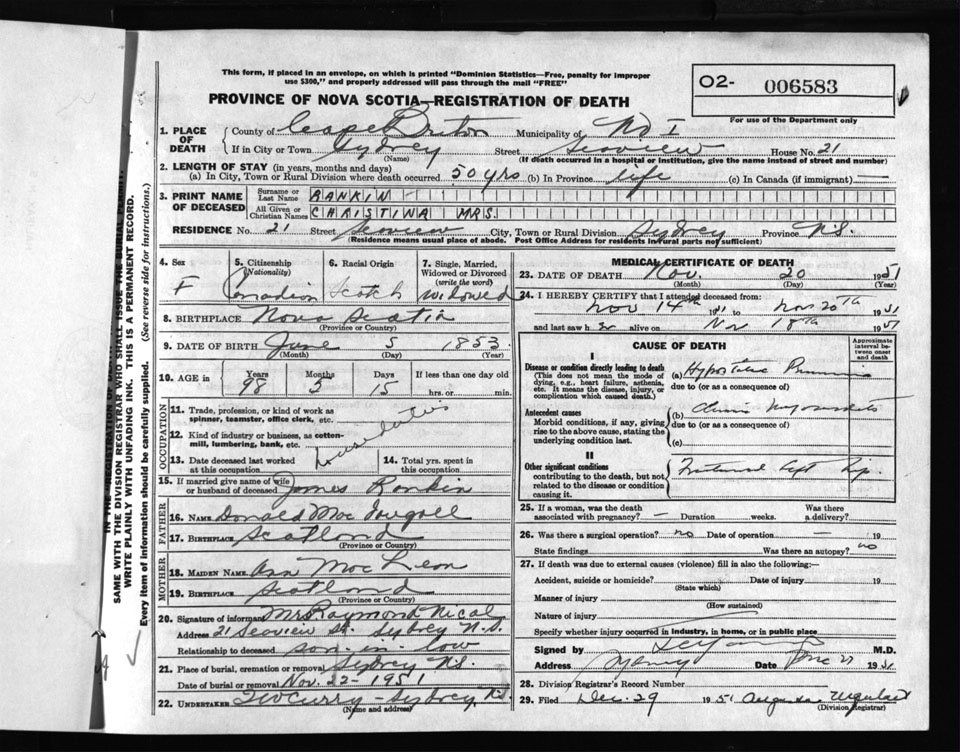 This form, if placed in an envelope, on which is printed "Dominion Statistics—Free, penalty for improper
use $300," and properly addressed will pass through the mail "FREE"
O2- 006583
PROVINCE OF NOVA SCOTIA—REGISTRATION OF DEATH
For use of the Department only
1. PLACE OF DEATH
County of Cape Breton Municipality of No I
If in City or Town Sydney Street Seaview House No. 21
(Name) (If death occurred in a hospital or institution, give the name instead of street and number)
2. LENGTH OF STAY (in years, months and days)
(a) In City, Town or Rural Division where death occurred 50 yrs (b) In Province life (c) In Canada (if immigrant) —
3. PRINT NAME OF DECEASED
Surname or Last Name RANKIN
All Given or Christian Names CHRISTINA MRS.
RESIDENCE No. 21 Street Seaview City, Town or Rural Division Sydney Province N.S.
(Residence means usual place of abode. Post Office Address for residents in rural parts not sufficient)
4. Sex
F
5. Citizenship
(Nationality)
Canadian
6. Racial Origin
Scotch
7. Single, Married,
Widowed or Divorced
(write the word)
Widowed
8. BIRTHPLACE Nova Scotia
(Province or Country)
9. DATE OF BIRTH June 5 1853
(Month) (Day) (Year)
10. AGE in Years Months Days If less than one day old
98 5 15 hrs. or min.
OCCUPATION
11. Trade, profession, or kind of work as
spinner, teamster, office clerk, etc.
12. Kind of industry or business, as cotton-
mill, lumbering, bank, etc.
13. Date deceased last worked
at this occupation
14. Total yrs. spent in
this occupation
15. If married give name of wife
or husband of deceased James Rankin
FATHER
16. NAME Donald Mac Dougall
17. BIRTHPLACE Scotland
(Province or Country)
MOTHER
18. MAIDEN NAME Ann Mac Lean
19. BIRTHPLACE Scotland
(Province or Country)
20. Signature of informant Mrs Raymond Nical
Address 21 Seaview St. Sydney N.S.
Relationship to deceased son-in-law
21. Place of burial, cremation or removal Sydney N.S.
Date of burial or removal Nov. 22-1951
22. UNDERTAKER Curry - Sydney, N.S.
(Name and address)
MEDICAL CERTIFICATE OF DEATH
23. DATE OF DEATH Nov. 20 1951
(Month) (Day) (Year)
24. I HEREBY CERTIFY that I attended deceased from:
Nov 14th 1951 to Nov 20th 1951
and last saw her alive on Nov 18th 1951
CAUSE OF DEATH
Approximate
interval be-
tween onset
and death
I
Disease or condition directly leading to death
(This does not mean the mode of
dying, e.g., heart failure, asthenia,
etc. It means the disease, injury, or
complication which caused death.)
(a) Hypostatic Pneumonia
due to (or as a consequence of)
Antecedent causes
Morbid conditions, if any, giving
rise to the above cause, stating the
underlying condition last.
(b) Chronic Myocarditis
due to (or as a consequence of)
(c)
II
Other significant conditions
contributing to the death, but not
related to the disease or condition
causing it.
Fractured Left Hip.
25. If a woman, was the death
associated with pregnancy? — Duration weeks. Was there
a delivery?
26. Was there a surgical operation? no Date of operation — 19
State findings Was there an autopsy? no
27. If death was due to external causes (violence) fill in also the following:—
Accident, suicide or homicide? Date of injury 19
(State which)
Manner of injury
(How sustained)
Nature of injury
Specify whether injury occurred in industry, in home, or in public place
Signed by M.D.
Address Sydney Date 1951
28. Division Registrar's Record Number
29. Filed Dec. 29 1951
(Division Registrar)
SAME WITH THE DIVISION REGISTRAR WHO SHALL ISSUE THE BURIAL PERMIT
WRITE PLAINLY WITH UNFADING INK. THIS IS A PERMANENT RECORD.
Every item of information should be carefully supplied. (See reverse side for instructions.)